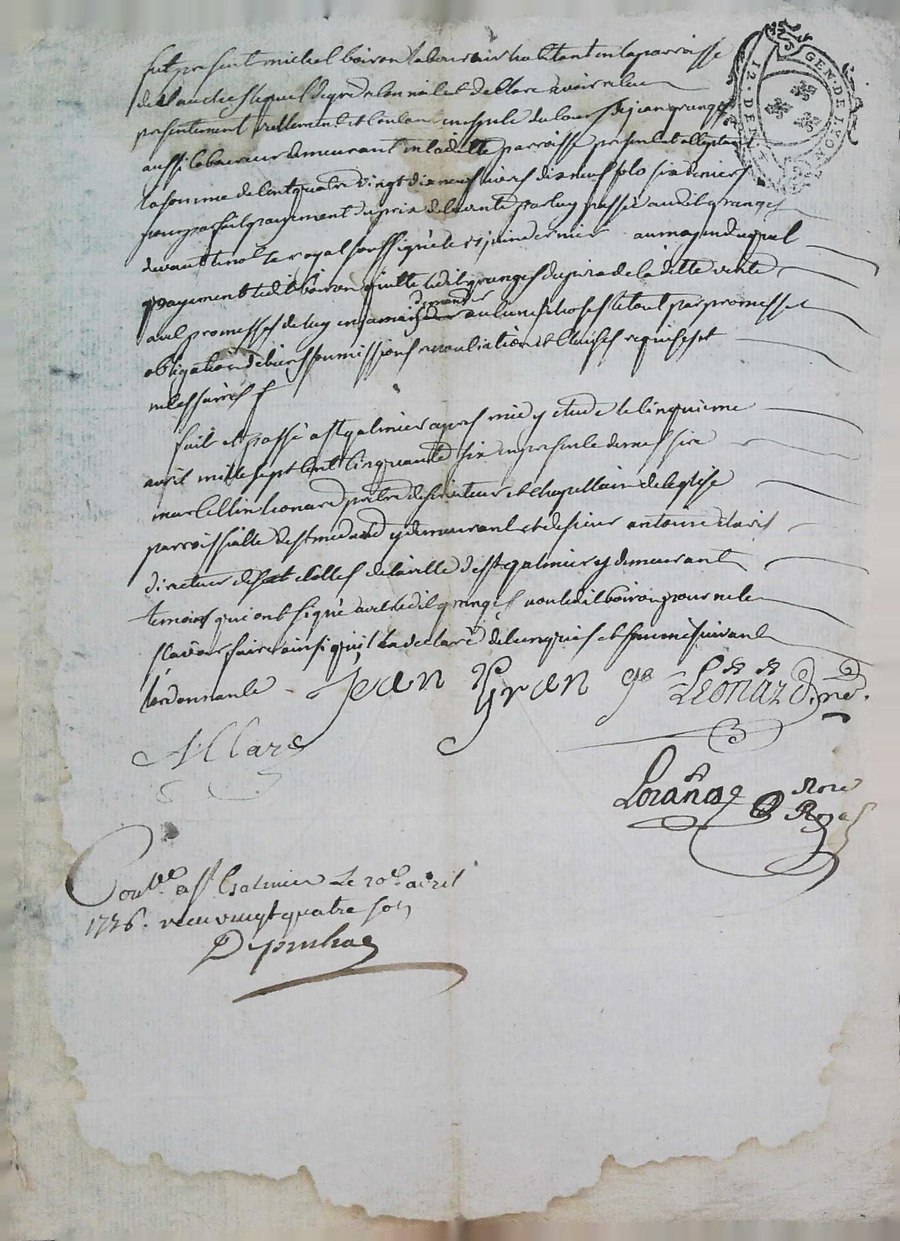 fut present michel boiron laboureur habitant en la parroisse
de lequel de gré a confessé et declare avoir receu
presentement reellement et contant en espece de cours de jean granges
aussi laboureur demeurant en la ditte parroisse present et acceptant
la somme de cent quatre vingt dix neuf livres dix neuf sols six deniers
pour parfait payement du prix de la vente par luy passée audit granges
devant le no.re royal soussigné le juin dernier au moyen duquel
payement ledit boiron quitte ledit granges du prix de la ditte vente
avec promesses de luy en jamais demander aucune chose le tout par promesses
obligation de biens soumissions renonciations et clauses requises et
necessaires
fait et passé a st galmier apres midy etude le cinquieme
avril mille sept cent cinquante six en presence de messire
marcellin leonard pretre desserviteur et chapellain de l'eglise
parroissialle de st medard y demeurant et de sieur antoine allard
directeur des de la ville de st galmier y demeurant
temoins qui ont signé avec ledit granges non ledit boiron pour ne le
scavoir faire ainsi qu'il l'a declaré de ce enquis et sommé suivant
l'ordonnance Jean Gran ge Leonard p.re
Allard
Nore
Royal
Con.le a st Galmier le avril
1756. recu vingt quatre sols
GEN. DE LYON
12. D